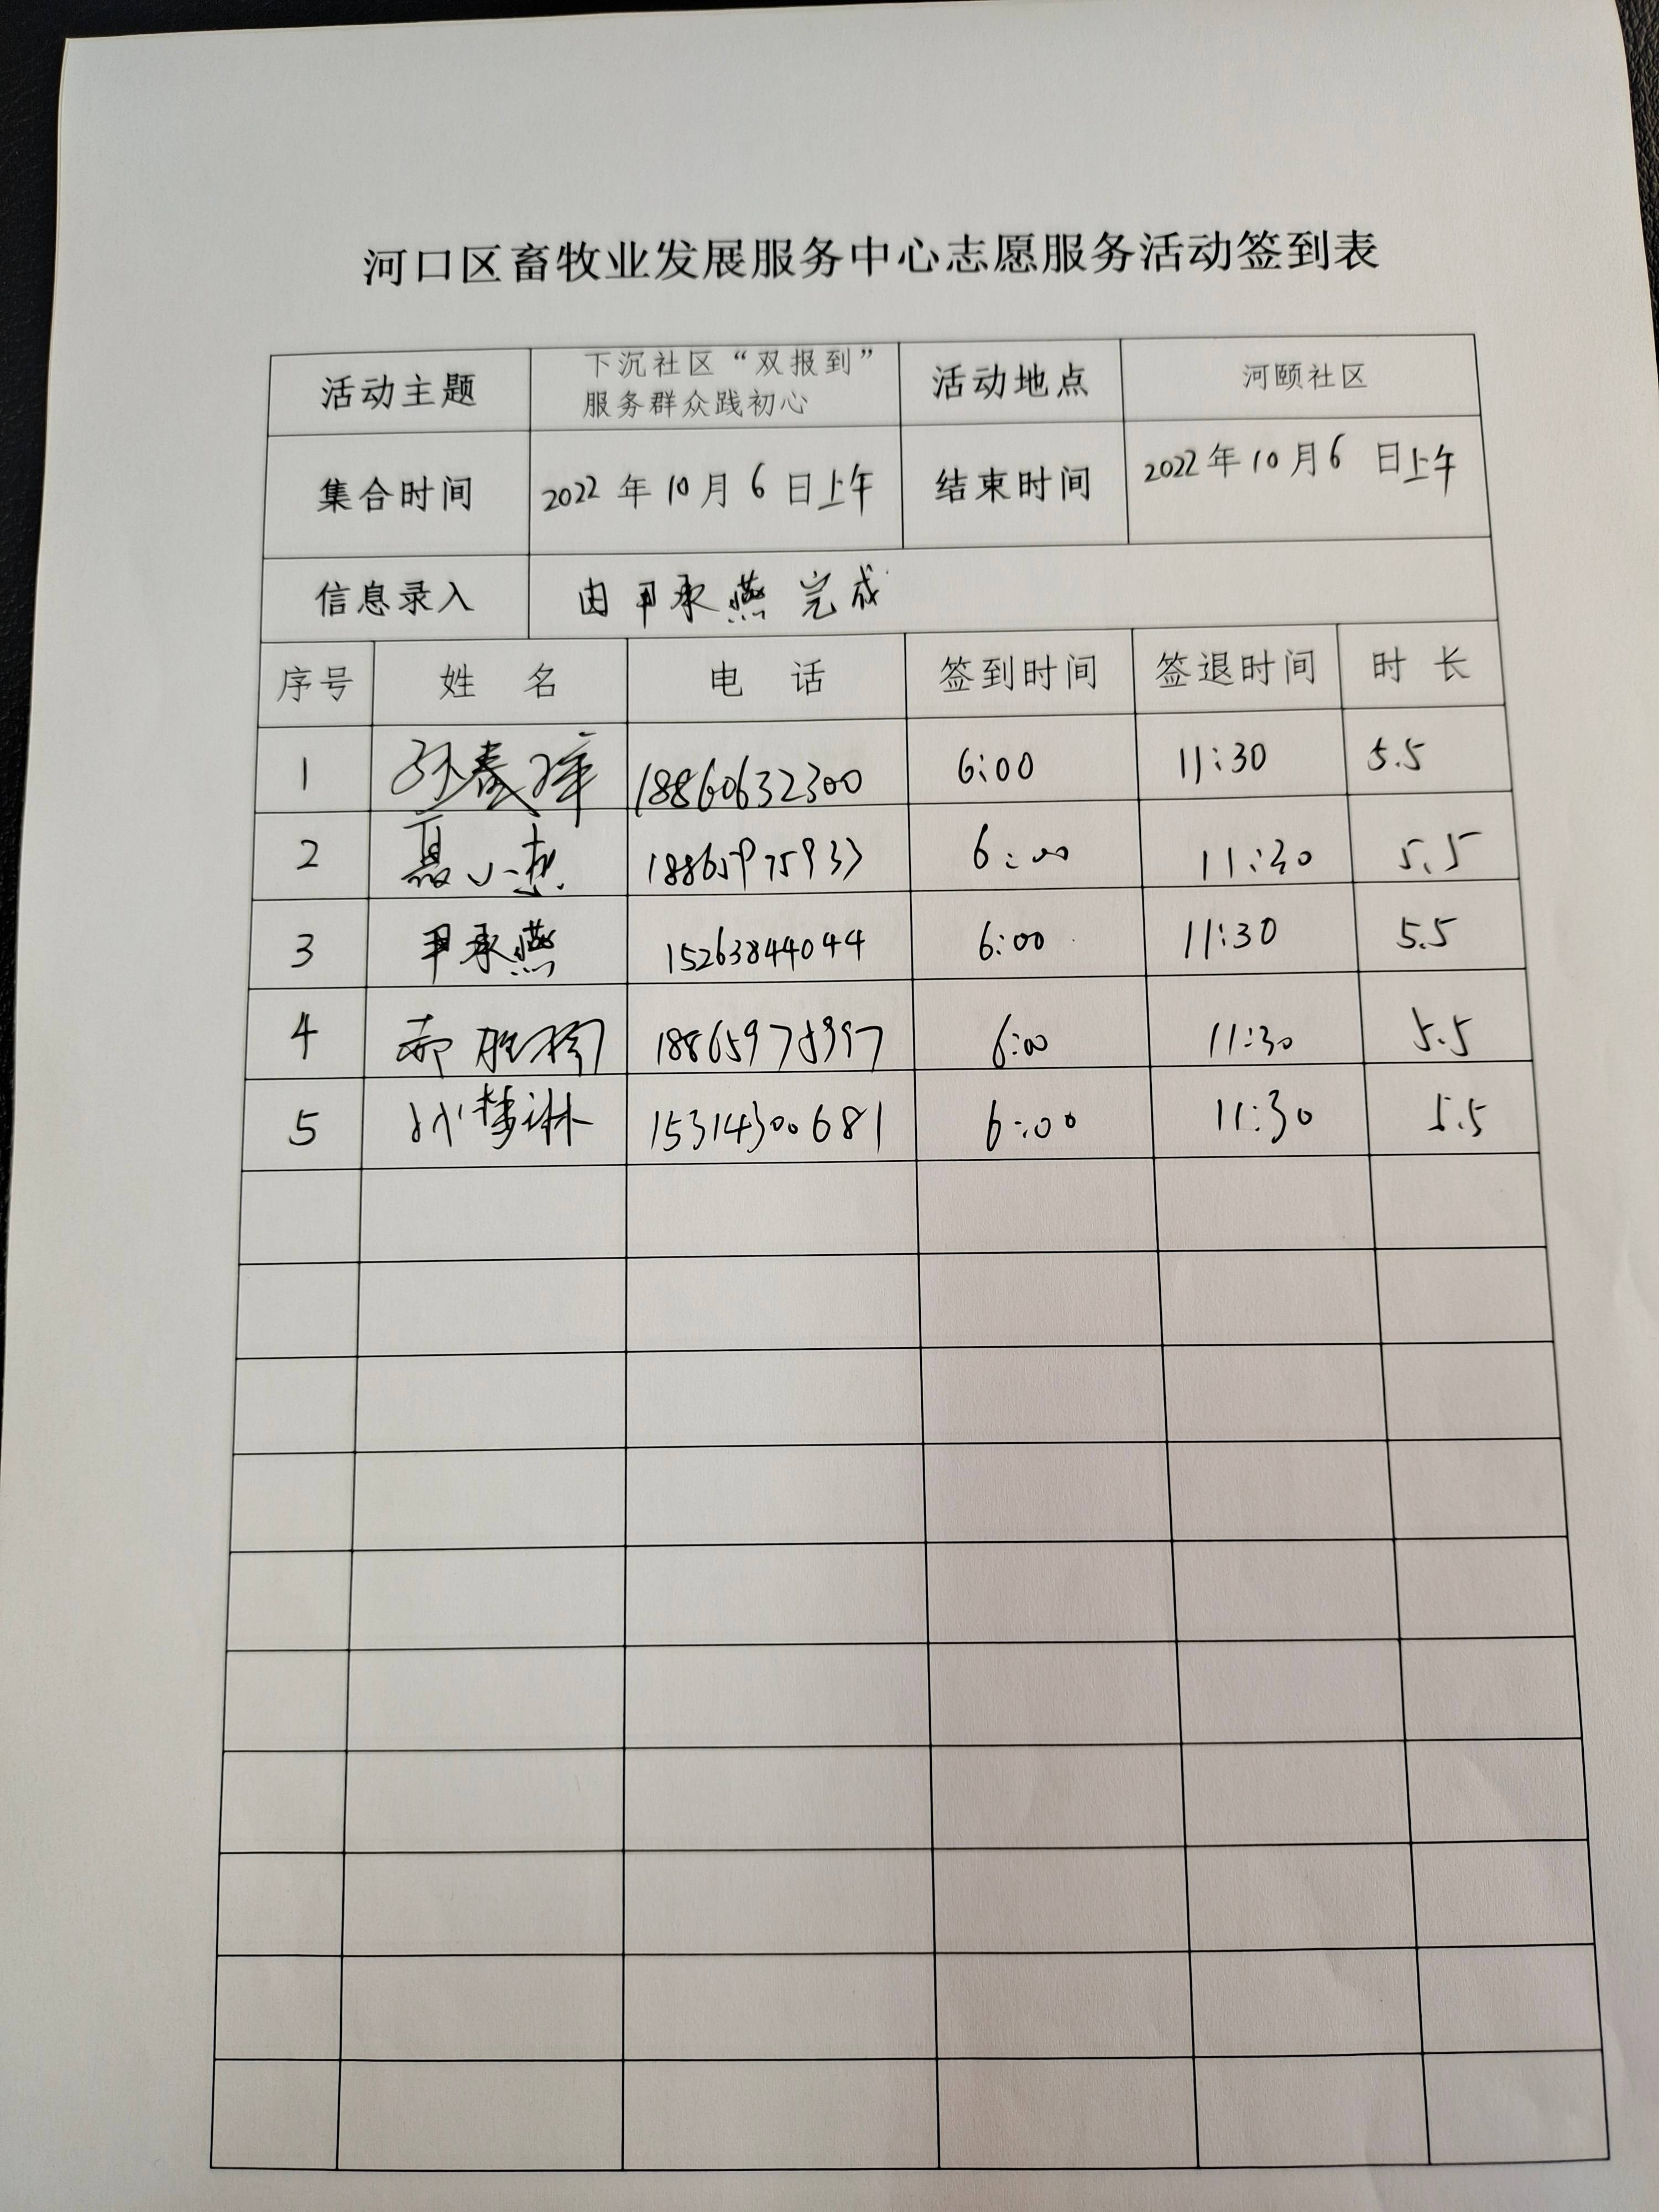 河口区畜牧业发展服务中心志愿服务活动签到表
活动主题 下沉社区“双报到” 服务群众践初心 活动地点 河颐社区
集合时间 2022年10月6日上午 结束时间 2022年10月6日上午
信息录入 由尹承燕完成
序号 姓名 电话 签到时间 签退时间 时长
1 18860632300 6:00 11:30 5.5
2 聂小 18865975933 6:00 11:30 5.5
3 尹承燕 15263844044 6:00 11:30 5.5
4 郝胜 18865975997 6:00 11:30 5.5
5 梦琳 15314300681 6:00 11:30 5.5